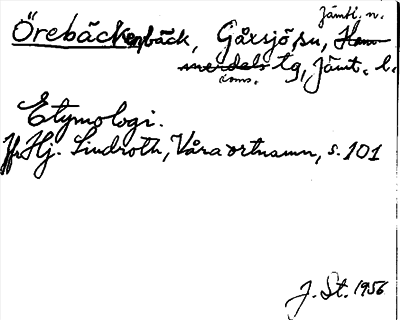 Jämtl. n.
Örebäckenbäck, Gåxsjö sn, Ham-
merdals tg, Jämt. l.
doms.
Etymologi.
Jfr Hj. Lindroth, Våra ortnamn, s. 101
J. St. 1956